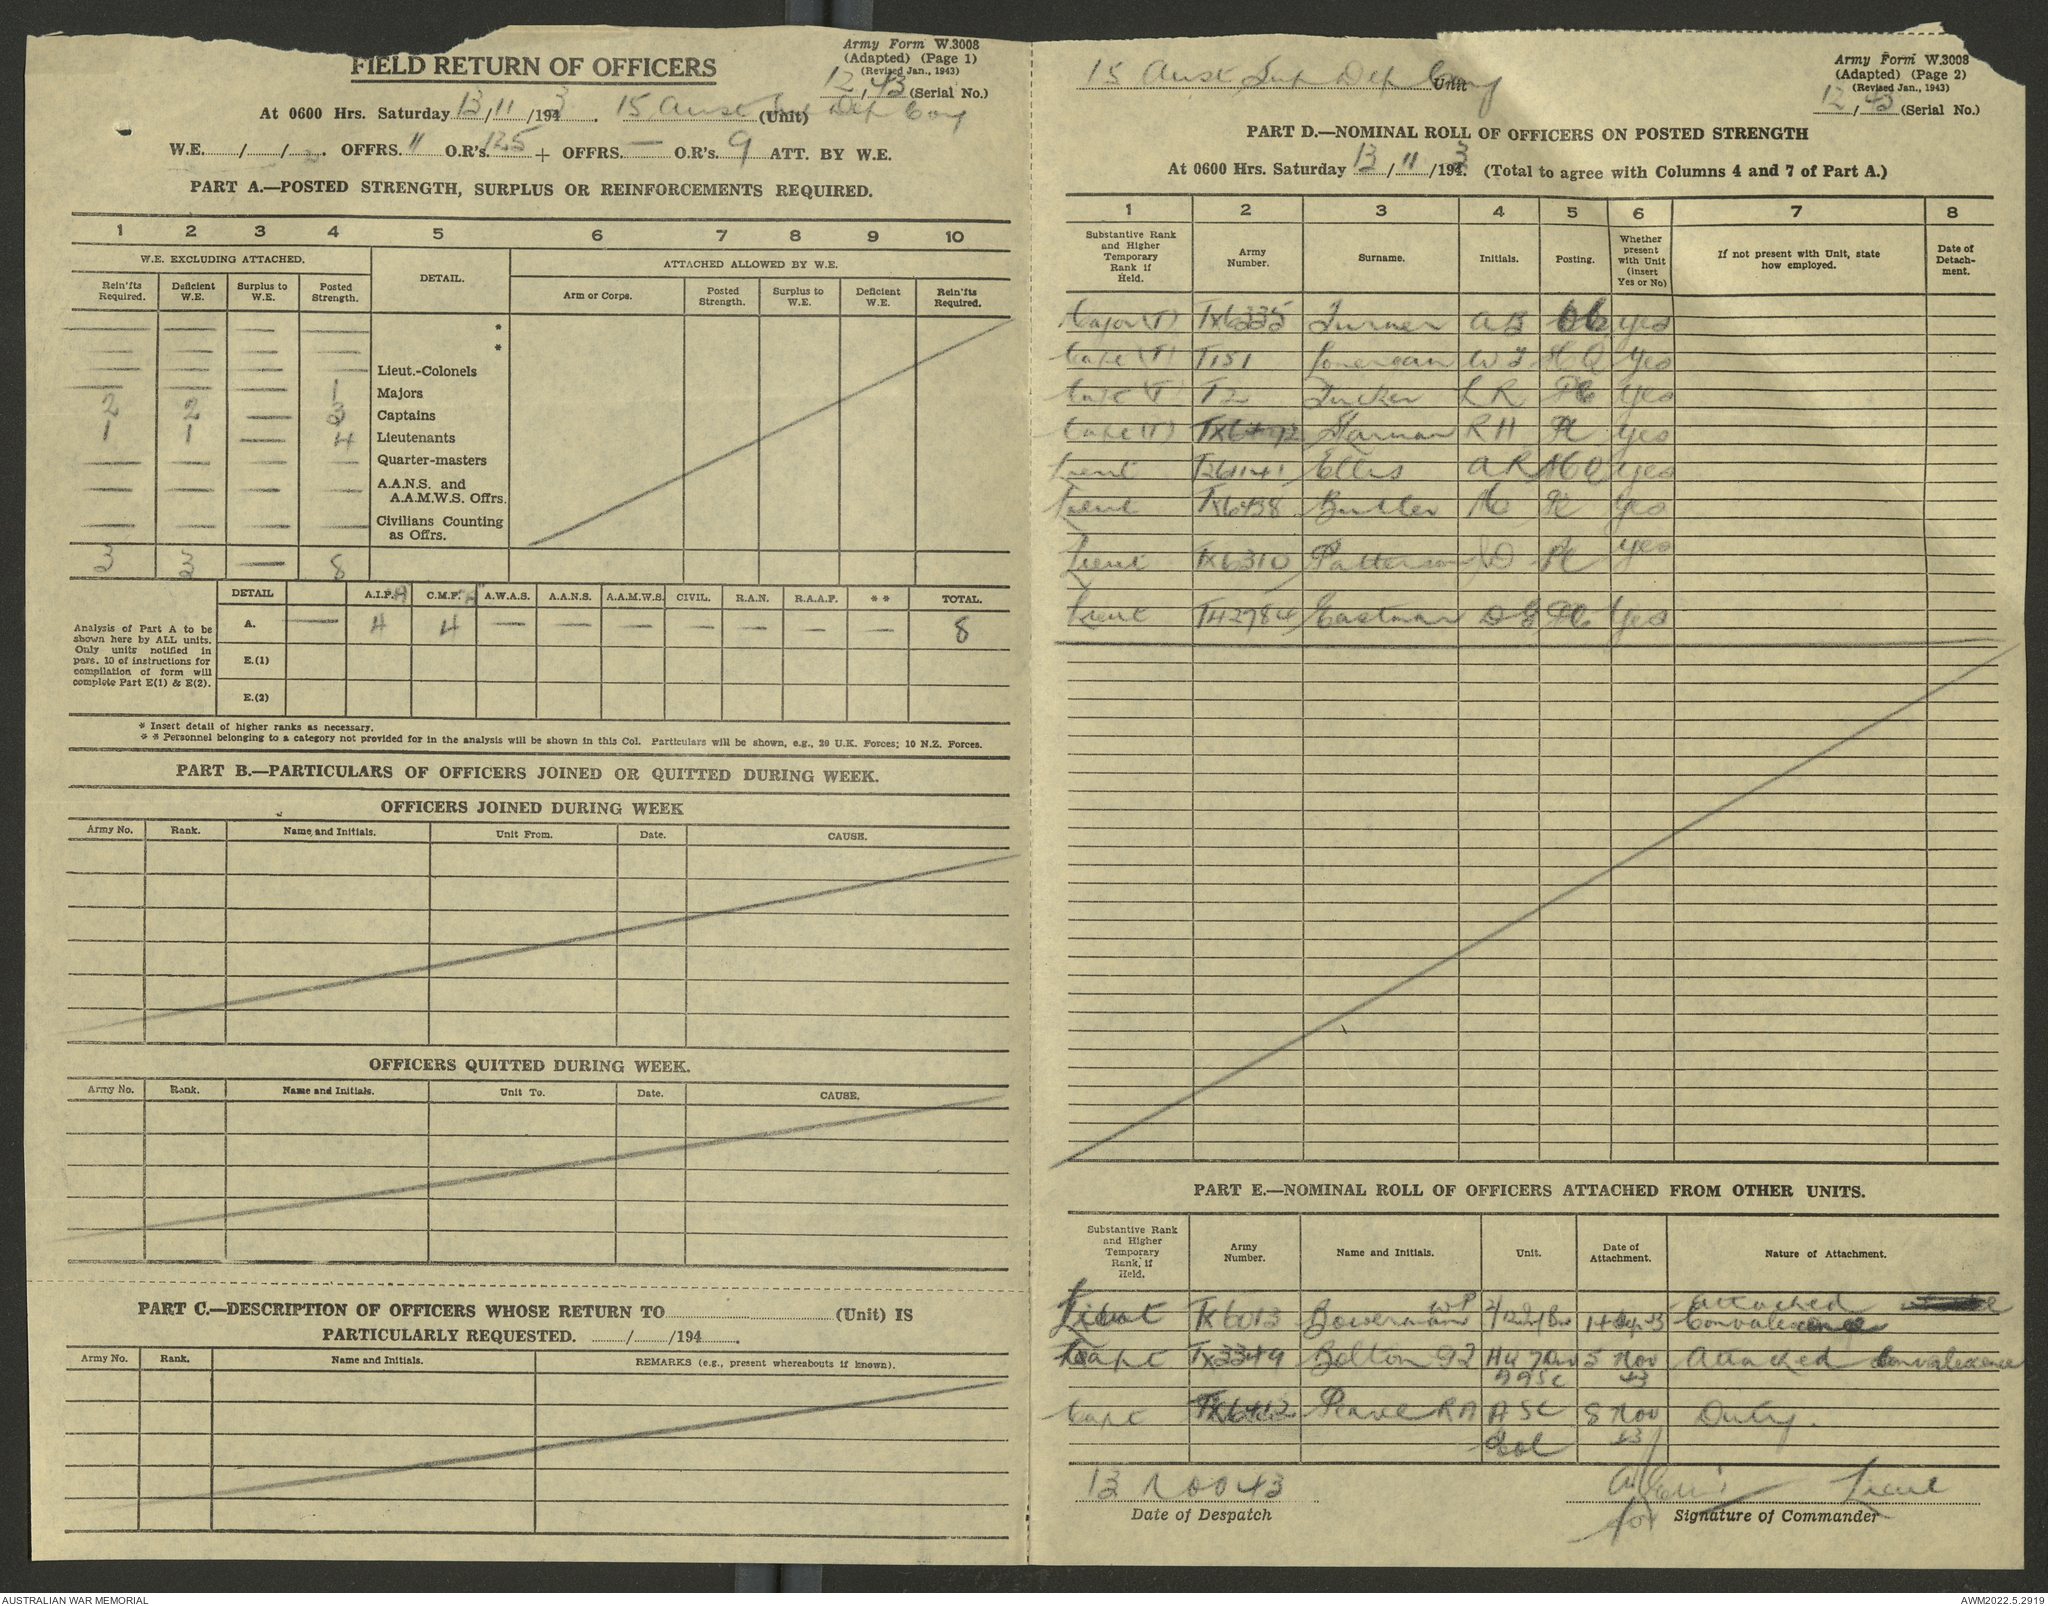 FIELD RETURN OF OFFICERS
Army Form W.3008
(Adapted) (Page 1)
(Revised Jan., 1943)
12/43 (Serial No.)
At 0600 Hrs. Saturday 13/11/1943. 15 Aust Sup Dep Coy (Unit)
W.E. / / . OFFRS. 11 O.R's. 125 + OFFRS. — O.R's. 9 ATT. BY W.E.
PART A.—POSTED STRENGTH, SURPLUS OR REINFORCEMENTS REQUIRED.
1 2 3 4 5 6 7 8 9 10
W.E. EXCLUDING ATTACHED. DETAIL. ATTACHED ALLOWED BY W.E.
Rein'fts Required. Deficient W.E. Surplus to W.E. Posted Strength. Arm or Corps. Posted Strength. Surplus to W.E. Deficient W.E. Rein'fts Required.
— — — — *
— — — — *
— — — — Lieut.-Colonels
— — — 1 Majors
2 2 — 3 Captains
1 1 — 4 Lieutenants
— — — — Quarter-masters
— — — — A.A.N.S. and A.A.M.W.S. Offrs.
— — — — Civilians Counting as Offrs.
3 3 — 8
DETAIL A.I.F. C.M.F. A.W.A.S. A.A.N.S. A.A.M.W.S. CIVIL. R.A.N. R.A.A.F. ** TOTAL.
A. — 4 4 — — — — — — — 8
E.(1)
E.(2)
Analysis of Part A to be
shown here by ALL units.
Only units notified in
pars. 10 of instructions for
compilation of form will
complete Part E(1) & E(2).
* Insert detail of higher ranks as necessary.
* * Personnel belonging to a category not provided for in the analysis will be shown in this Col. Particulars will be shown, e.g., 20 U.K. Forces; 10 N.Z. Forces.
PART B.—PARTICULARS OF OFFICERS JOINED OR QUITTED DURING WEEK.
OFFICERS JOINED DURING WEEK
Army No. Rank. Name and Initials. Unit From. Date. CAUSE.
OFFICERS QUITTED DURING WEEK.
Army No. Rank. Name and Initials. Unit To. Date. CAUSE.
PART C.—DESCRIPTION OF OFFICERS WHOSE RETURN TO (Unit) IS
PARTICULARLY REQUESTED. / /194 .
Army No. Rank. Name and Initials. REMARKS (e.g., present whereabouts if known).
15 Aust Sup Dep Coy Unit
Army Form W.3008
(Adapted) (Page 2)
(Revised Jan., 1943)
12/43 (Serial No.)
PART D.—NOMINAL ROLL OF OFFICERS ON POSTED STRENGTH
At 0600 Hrs. Saturday 13/11/1943. (Total to agree with Columns 4 and 7 of Part A.)
1 2 3 4 5 6 7 8
Substantive Rank and Higher Temporary Rank if Held. Army Number. Surname. Initials. Posting. Whether present with Unit (insert Yes or No) If not present with Unit, state how employed. Date of Detachment.
Major (T) TX6335 Turner A B OC yes
Capt (T) T151 Lonergan W J HQ Yes
Capt (T) T2 Tucker L R Pl Yes
Capt (T) R H Pl yes
Lieut T26141 Ellis A R yes
Lieut TX6438 Butler Pl Yes
Lieut TX6310 Patterson D Pl yes
Lieut T42784 Eastman D G Yes
PART E.—NOMINAL ROLL OF OFFICERS ATTACHED FROM OTHER UNITS.
Substantive Rank and Higher Temporary Rank, if Held. Army Number. Name and Initials. Unit. Date of Attachment. Nature of Attachment.
Lieut TX6013 Bowerman W P 14 Sep 43 Attached Convalescence
Capt TX3349 Bolton G J HQ 7 Div AASC 5 Nov 43 Attached Convalescence
Capt TX6412 Pearce R A ASC 8 Nov 43 Duty.
13 Nov 43
Date of Despatch
A Ellis Lieut
for Signature of Commander
AUSTRALIAN WAR MEMORIAL
AWM2022.5.2919